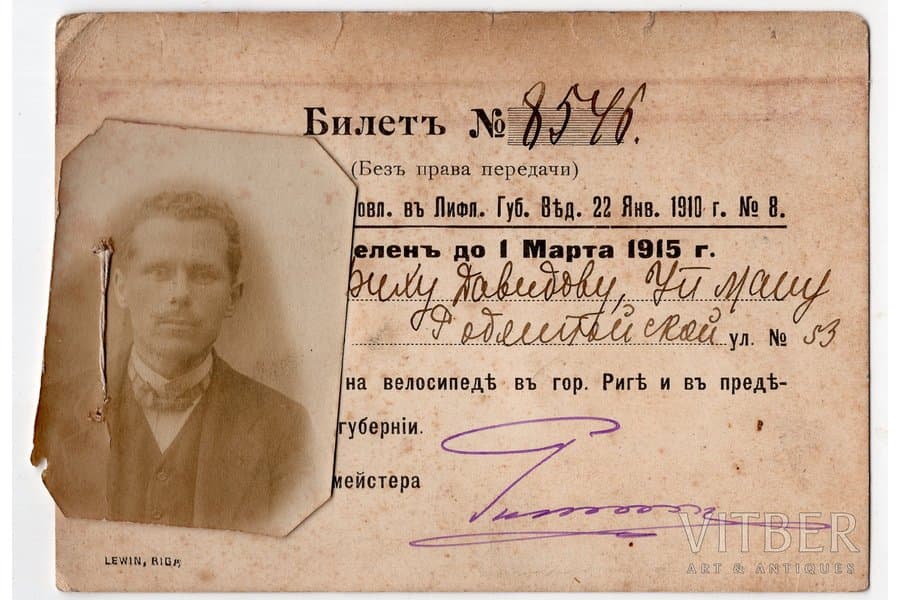 Билетъ № 8546.
(Безъ права передачи)
овл. въ Лифл. Губ. Вѣд. 22 Янв. 1910 г. № 8.
еленъ до 1 Марта 1915 г.
риху Давидову, Ульману
ул. № 53
на велосипедѣ въ гор. Ригѣ и въ предѣ-
губерніи.
мейстера
LEWIN, RIGA
VITBER
ART & ANTIQUES